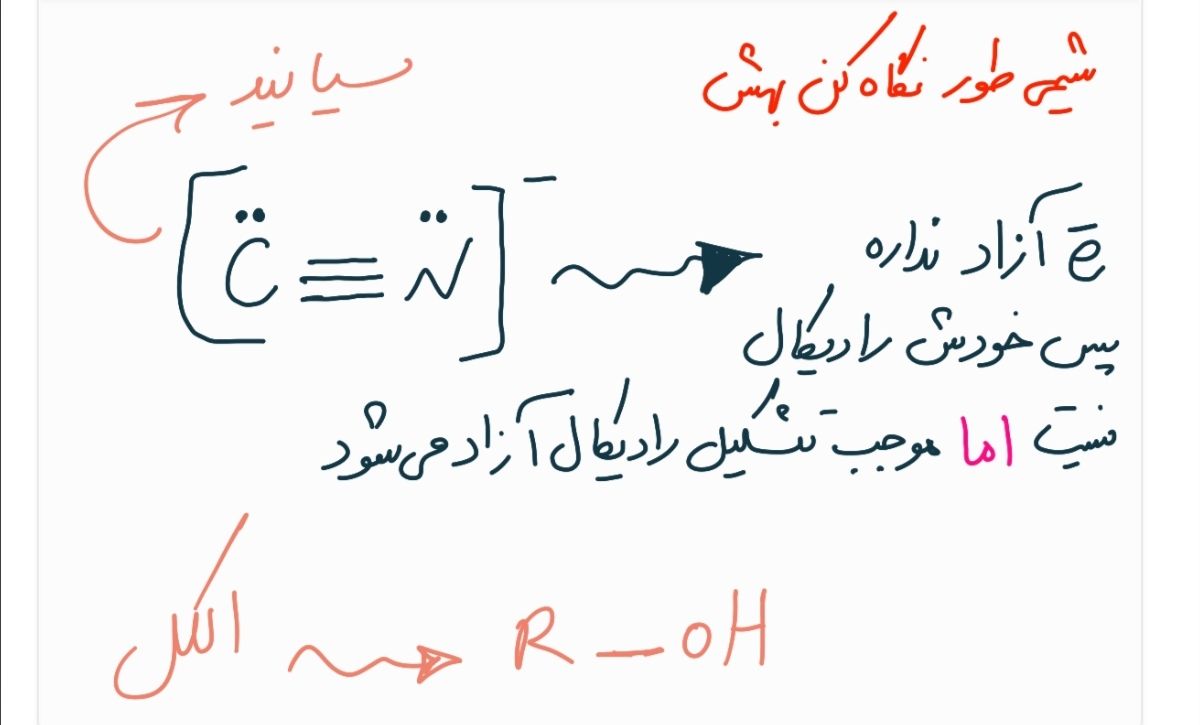 شیمی طور نگاه کن بهش
سیانید
[C̈ ≡ N̈]⁻
e⁻ آزاد نداره
پس خودش رادیکال
نیست اما موجب تشکیل رادیکال آزاد می‌شود
الکل R — OH